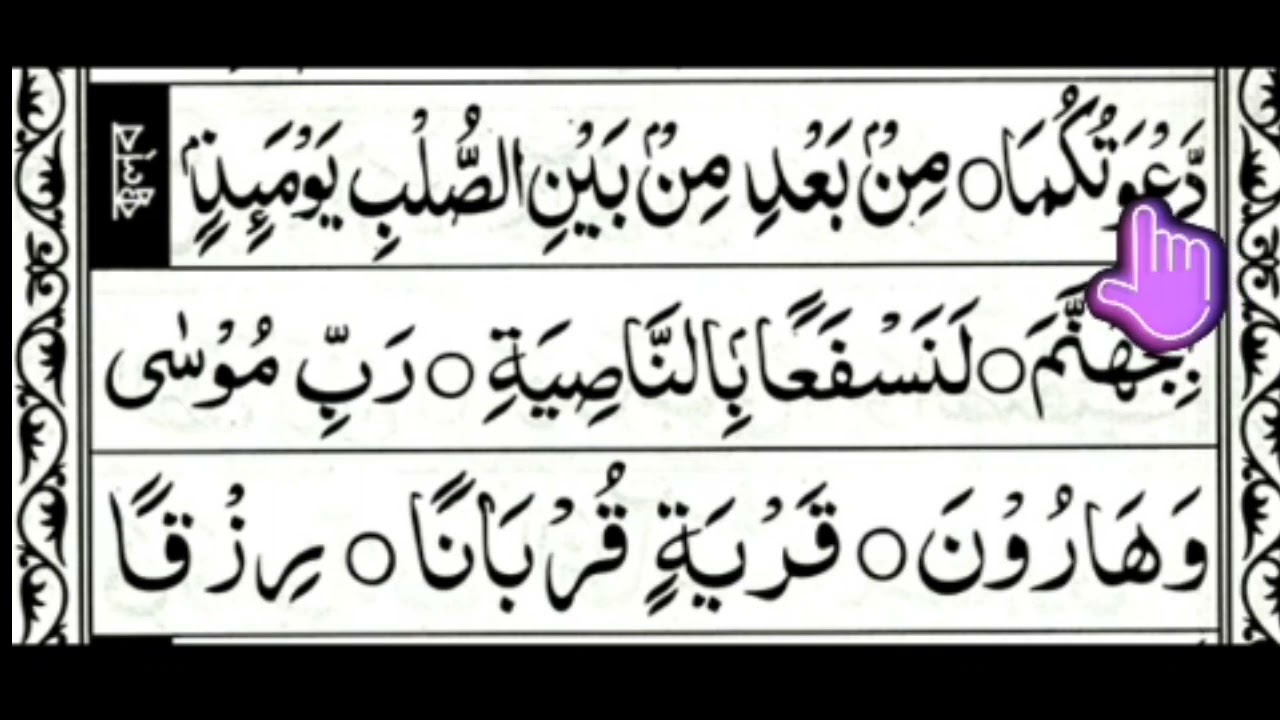 دَّعْوَتُكُمَا ○ مِنْۢ بَعْدِ مِنْۢ بَيْنِ الصُّلْبِ يَوْمَئِذٍۭ
بِجَهَنَّمَ ○ لَنَسْفَعًا بِالنَّاصِيَةِ ○ رَبِّ مُوْسٰى
وَهَارُوْنَ ○ قَرْيَةٍ قُرْبَانًا ○ رِزْقًا